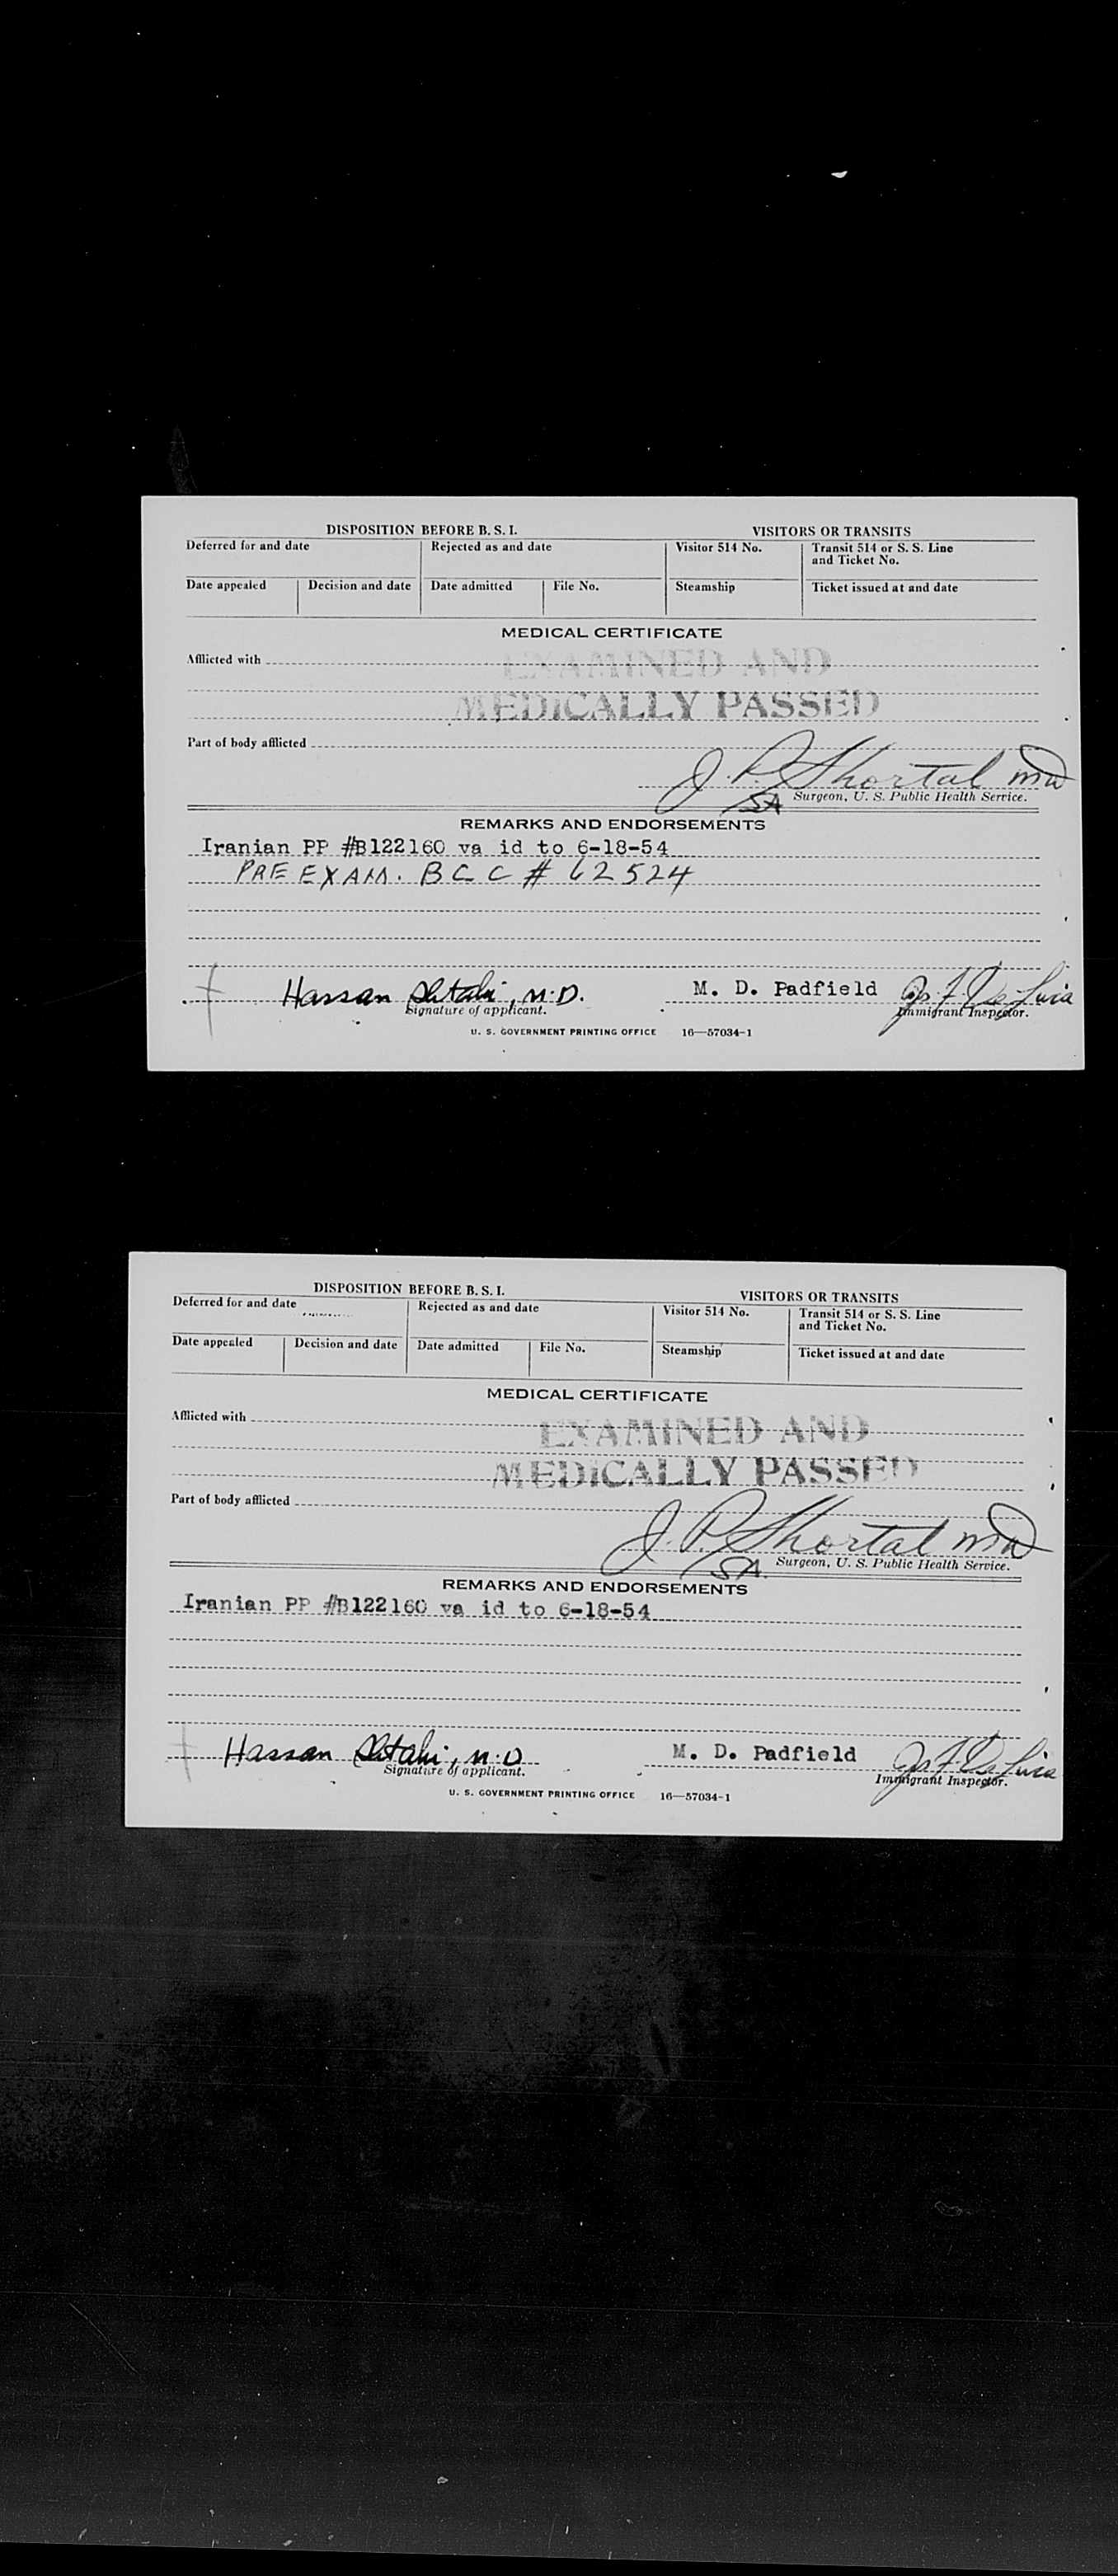 DISPOSITION BEFORE B. S. I. VISITORS OR TRANSITS
Deferred for and date Rejected as and date Visitor 514 No. Transit 514 or S. S. Line
and Ticket No.
Date appealed Decision and date Date admitted File No. Steamship Ticket issued at and date
MEDICAL CERTIFICATE
Afflicted with
EXAMINED AND
MEDICALLY PASSED
Part of body afflicted
J. P. Shortal MD
SA Surgeon, U. S. Public Health Service.
REMARKS AND ENDORSEMENTS
Iranian PP #B122160 va id to 6-18-54
PRE EXAM. BCC # 62524
Hassan M.D. M. D. Padfield
Signature of applicant. Immigrant Inspector.
U. S. GOVERNMENT PRINTING OFFICE 16—57034-1
DISPOSITION BEFORE B. S. I. VISITORS OR TRANSITS
Deferred for and date Rejected as and date Visitor 514 No. Transit 514 or S. S. Line
and Ticket No.
Date appealed Decision and date Date admitted File No. Steamship Ticket issued at and date
MEDICAL CERTIFICATE
Afflicted with
EXAMINED AND
MEDICALLY PASSED
Part of body afflicted
J. P. Shortal MD
SA Surgeon, U. S. Public Health Service.
REMARKS AND ENDORSEMENTS
Iranian PP #B122160 va id to 6-18-54
Hassan M.D. M. D. Padfield
Signature of applicant. Immigrant Inspector.
U. S. GOVERNMENT PRINTING OFFICE 16—57034-1